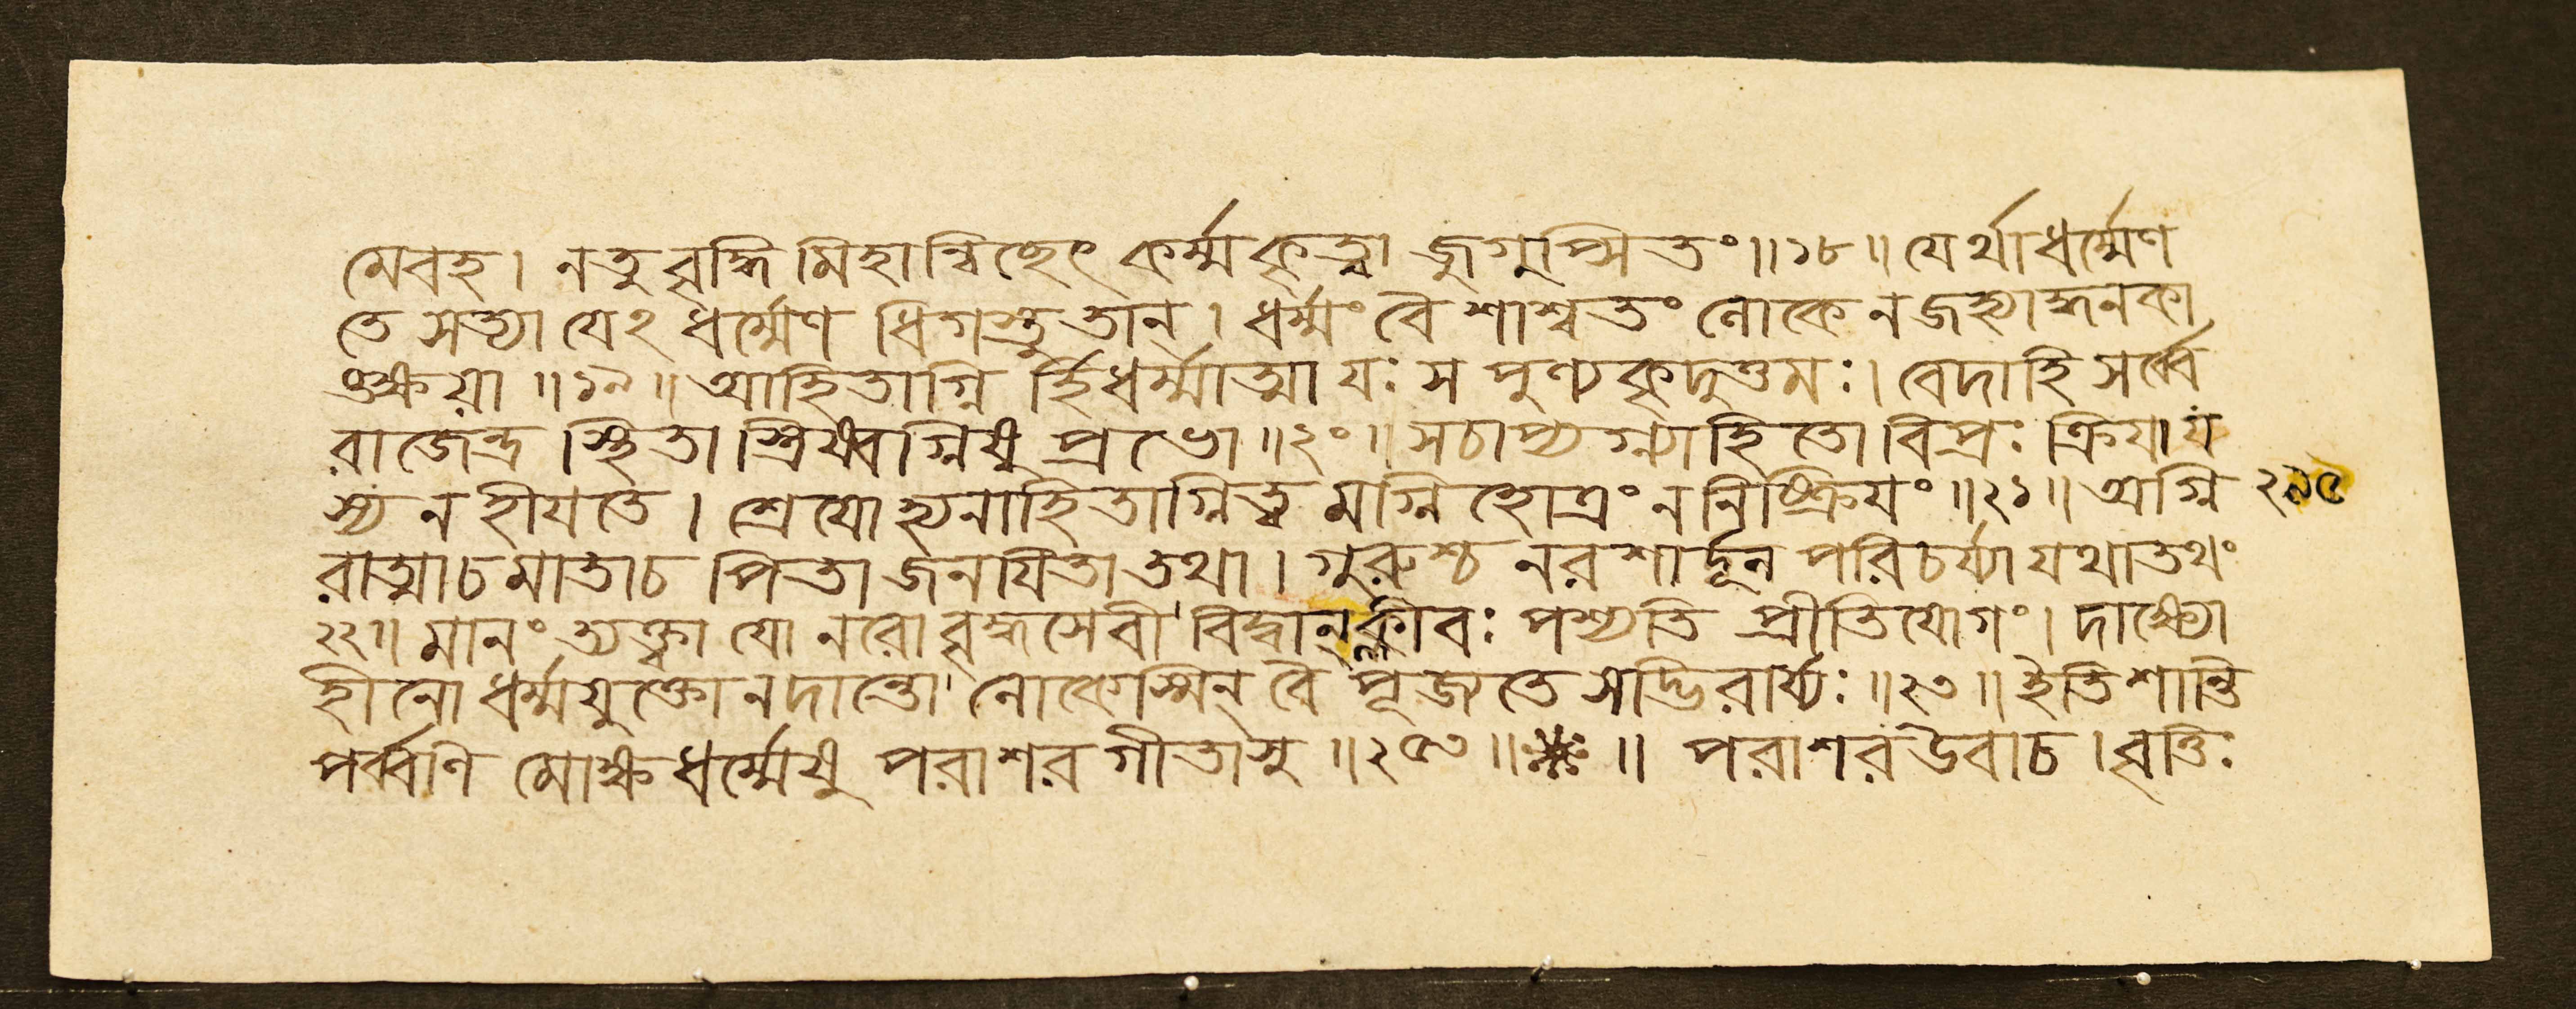 মেবহ। নতু বৃদ্ধি মিহান্বিচ্ছেৎ কর্ম্ম কৃত্বা জুগুপ্সিতং॥১৮॥ যের্থা ধর্ম্মেণ
তে সত্যা যেঽধর্ম্মেণ ধিগস্তু তান্। ধর্ম্মং বৈ শাশ্বতং লোকে ন জহ্যাদ্ধনকা
ঙ্ক্ষয়া॥১৯॥ আহিতাগ্নি র্হি ধর্ম্মাত্মা যঃ স পুণ্যকৃদুত্তমঃ। বেদাহি সর্ব্বে
রাজেন্দ্র স্থিতাস্ত্রিষ্বগ্নিষু প্রভো॥২০॥ স চাপ্যগ্ন্যাহিতো বিপ্রঃ ক্রিয়া য
স্য ন হীয়তে। শ্রেয়ো হ্যনাহিতাগ্নিত্ব মগ্নিহোত্রং ন নিষ্ক্রিয়ং॥২১॥ অগ্নি ২৯৫
রাত্মা চ মাতা চ পিতা জনয়িতা তথা। গুরুশ্চ নরশার্দ্দূল পরিচর্য্যা যথাতথং
২২॥ মানং ত্যক্ত্বা যো নরো বৃদ্ধসেবী বিদ্বান্ ক্লীবঃ পশ্যতি প্রীতিযোগং। দাক্ষ্যে
হীনো ধর্ম্মযুক্তো ন দান্তো লোকেস্মিন্ বৈ পূজ্যতে সদ্ভিরার্য্যঃ॥২৩॥ ইতি শান্তি
পর্ব্বণি মোক্ষধর্ম্মেষু পরাশরগীতাসু॥২৫৩॥ ॥ পরাশর উবাচ। বৃত্তিঃ